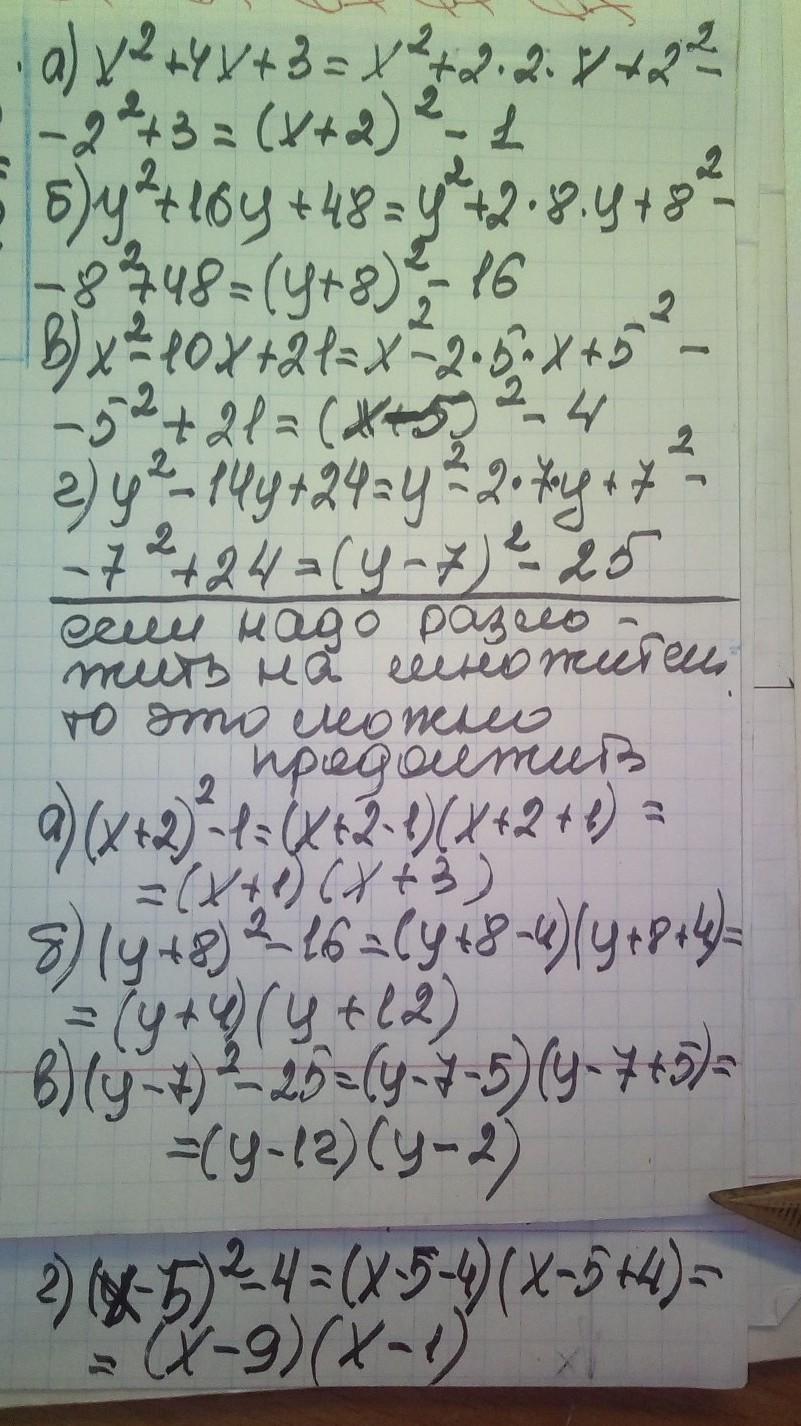 а) x²+4x+3=x²+2·2·x+2²-
-2²+3=(x+2)²-1
б) y²+16y+48=y²+2·8·y+8²-
-8²+48=(y+8)²-16
в) x²-10x+21=x²-2·5·x+5²-
-5²+21=(x-5)²-4
г) y²-14y+24=y²-2·7·y+7²-
-7²+24=(y-7)²-25
если надо разло-
жить на множители,
то это можно
продолжить
а) (x+2)²-1=(x+2-1)(x+2+1)=
=(x+1)(x+3)
б) (y+8)²-16=(y+8-4)(y+8+4)=
=(y+4)(y+12)
в) (y-7)²-25=(y-7-5)(y-7+5)=
=(y-12)(y-2)
г) (x-5)²-4=(x-5-4)(x-5+4)=
=(x-9)(x-1)